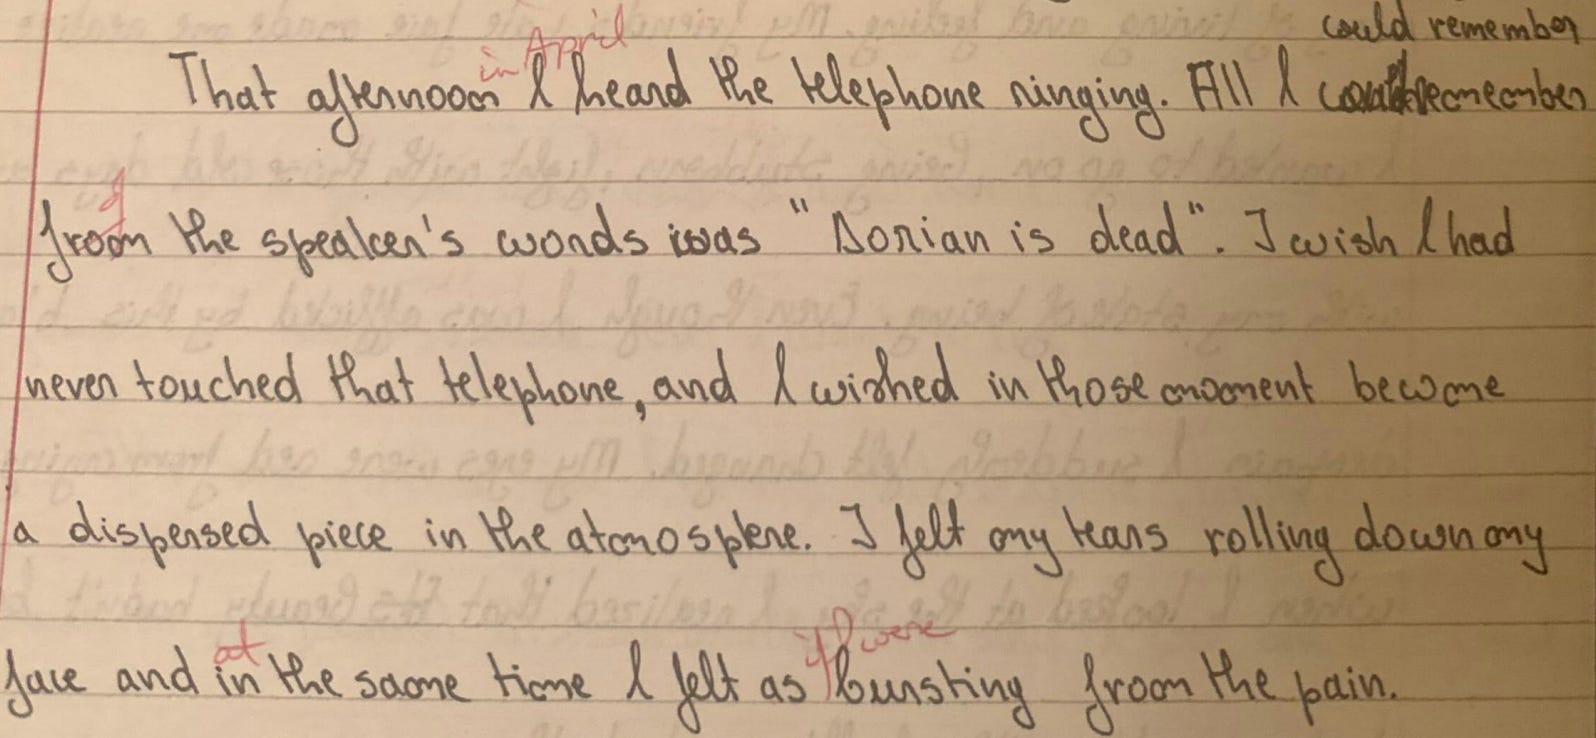 could remember
in April
That afternoon I heard the telephone ringing. All I could remember
of
from the speaker's words was "Dorian is dead". I wish I had
never touched that telephone, and I wished in those moment become
a dispersed piece in the atmosphere. I felt my tears rolling down my
at if I were
face and in the same time I felt as bursting from the pain.